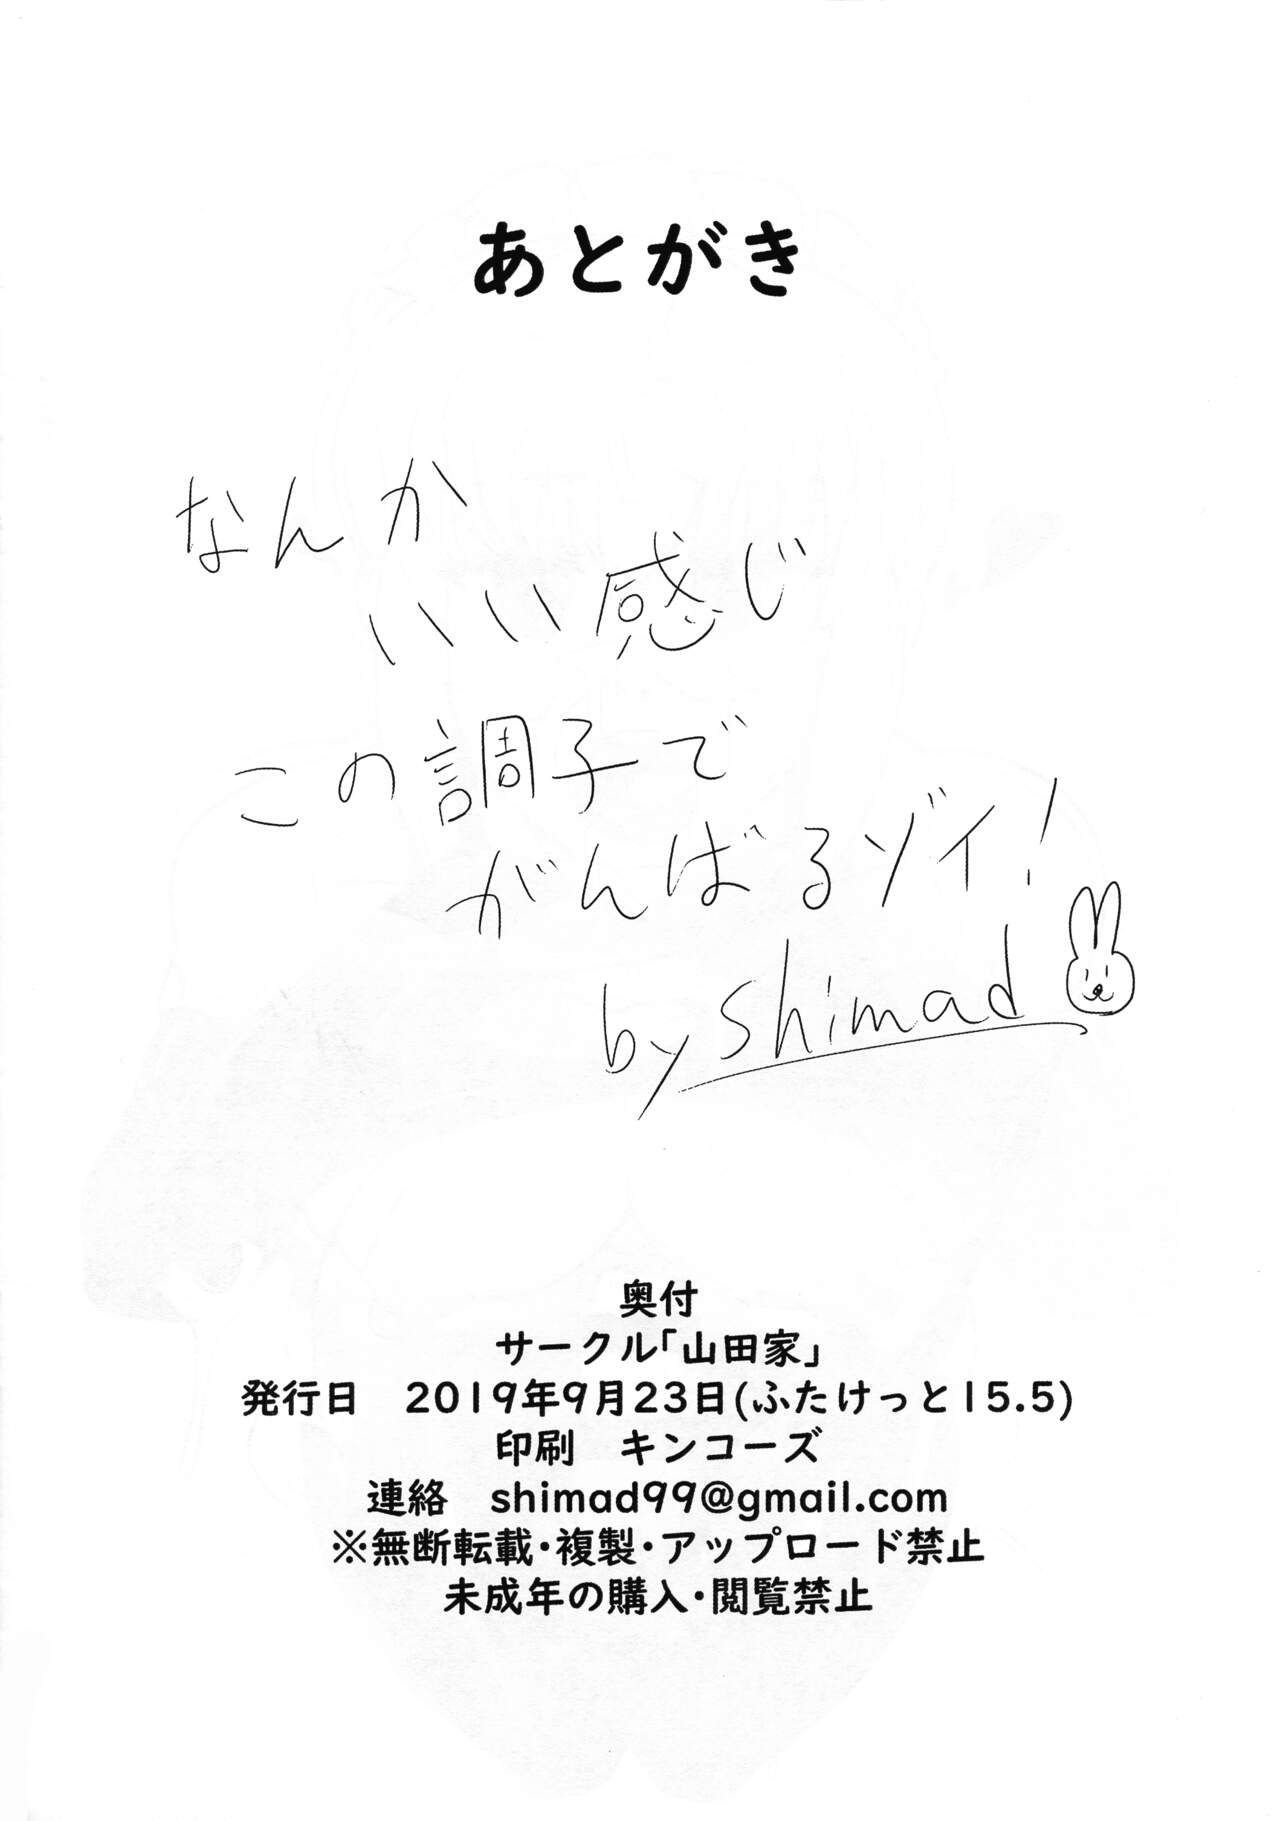 あとがき
なんか
いい感じ
この調子で
がんばるゾイ!
by shimad
奥付
サークル「山田家」
発行日　2019年9月23日(ふたけっと15.5)
印刷　キンコーズ
連絡　shimad99@gmail.com
※無断転載・複製・アップロード禁止
未成年の購入・閲覧禁止